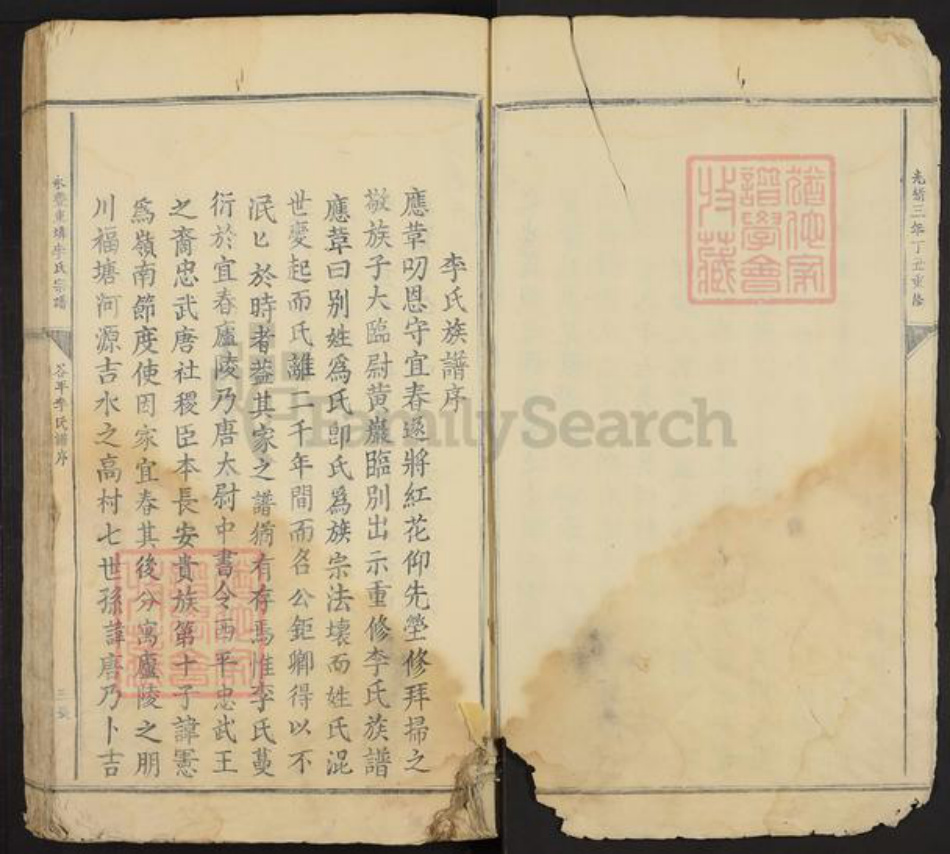 光緒三年丁丑重修
李氏族譜序
應葦叨恩守宜春遂將紅花仰先塋修拜掃之
敬族子大臨尉黃巖臨別出示重修李氏族譜
應葦曰別姓爲氏卽氏爲族宗法壞而姓氏混
世變起而氏離二千年間而名公鉅卿得以不
泯匕於時者葢其家之譜猶有存焉惟李氏蔓
衍於宜春廬陵乃唐太尉中書令西平忠武王
之裔忠武唐社稷臣本長安貴族第十子諱憲
爲嶺南節度使因家宜春其後分寓廬陵之朋
川福塘河源吉水之高村七世孫諱唐乃卜吉
李氏宗譜
谷平李氏譜序
FamilySearch